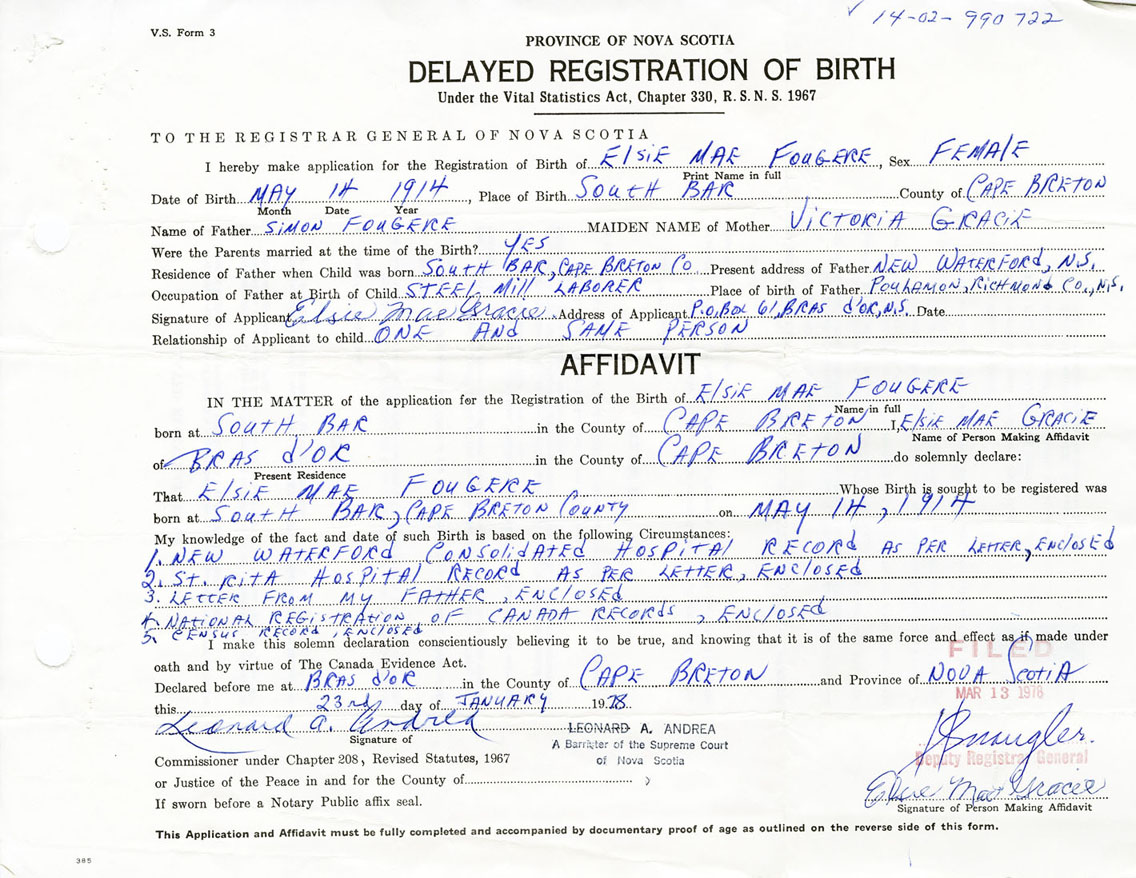 ✓ 14-02-990 722
V.S. Form 3
PROVINCE OF NOVA SCOTIA
DELAYED REGISTRATION OF BIRTH
Under the Vital Statistics Act, Chapter 330, R.S.N.S. 1967
TO THE REGISTRAR GENERAL OF NOVA SCOTIA
I hereby make application for the Registration of Birth of ElsiE MAE FOUGERE, Sex FEMAlE
Print Name in full
Date of Birth MAY 14 1914, Place of Birth SOUTH BAR County of CAPE BRETON
Month Date Year
Name of Father SIMON FOUGERE MAIDEN NAME of Mother VICTORIA GRACIE
Were the Parents married at the time of the Birth? YES
Residence of Father when Child was born SOUTH BAR, CAPE BRETON CO Present address of Father NEW WATERFORD, N.S.
Occupation of Father at Birth of Child STEEL Mill LABORER Place of birth of Father POULAMON, RICHMOND CO., N.S.
Signature of Applicant Elsie Mae Gracie Address of Applicant P.O. BOX 61, BRAS d'OR, N.S. Date
Relationship of Applicant to child ONE ANd SAME PERSON
AFFIDAVIT
IN THE MATTER of the application for the Registration of the Birth of ElSiE MAE FOUGERE
Name in full
born at SOUTH BAR in the County of CAPE BRETON I, ElsiE MAE GRACIE
Name of Person Making Affidavit
of BRAS d'OR in the County of CAPE BRETON do solemnly declare:
Present Residence
That ElsiE MAE FOUGERE Whose Birth is sought to be registered was
born at SOUTH BAR, CAPE BRETON COUNTY on MAY 14, 1914
My knowledge of the fact and date of such Birth is based on the following Circumstances:
1. NEW WATERFORd CONSOlidATEd HOSPITAl RECORd AS PER LETTER, ENCLOSEd
2. ST. RITA HOSPITAl RECORd AS PER LETTER, ENCLOSEd
3. LETTER FROM MY FATHER, ENCLOSEd
4. NATIONAL REGISTRATION OF CANADA RECORDS, ENCLOSEd
5. CENSUS RECORd, ENCLOSEd
I make this solemn declaration conscientiously believing it to be true, and knowing that it is of the same force and effect as if made under
oath and by virtue of The Canada Evidence Act.
FILED
Declared before me at BRAS d'OR in the County of CAPE BRETON and Province of NOVA SCOTIA
MAR 13 1978
this 23rd day of JANUARY 1978.
Leonard A. Andrea
LEONARD A. ANDREA
Signature of
A Barrister of the Supreme Court
of Nova Scotia
Commissioner under Chapter 208, Revised Statutes, 1967
Deputy Registrar General
or Justice of the Peace in and for the County of )
Elsie Mae Gracie
If sworn before a Notary Public affix seal.
Signature of Person Making Affidavit
This Application and Affidavit must be fully completed and accompanied by documentary proof of age as outlined on the reverse side of this form.
385